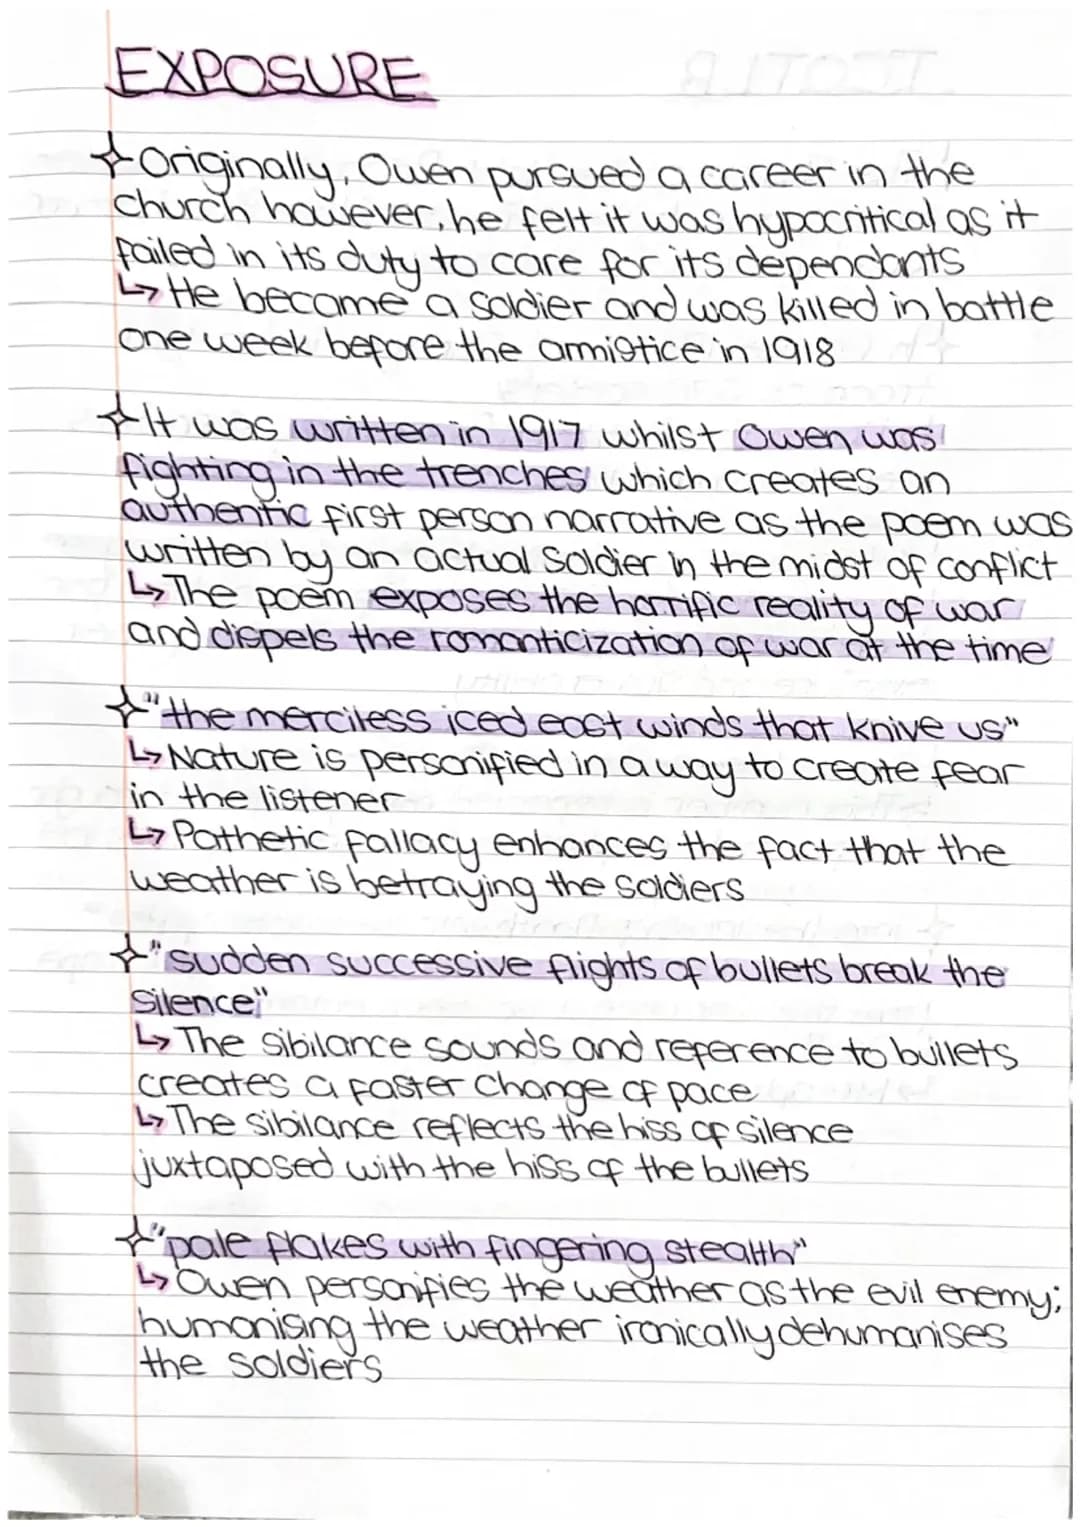 EXPOSURE
Originally, Owen pursued a career in the
church however, he felt it was hypocritical as it
failed in its duty to care for its dependants
↳ He became a soldier and was killed in battle
one week before the armistice in 1918
It was written in 1917 whilst Owen was
fighting in the trenches which creates an
authentic first person narrative as the poem was
written by an actual soldier in the midst of conflict
↳ The poem exposes the horrific reality of war
and dispels the romanticization of war at the time
"the merciless iced east winds that knive us"
↳ Nature is personified in a way to create fear
in the listener
↳ Pathetic fallacy enhances the fact that the
weather is betraying the soldiers
"sudden successive flights of bullets break the
silence"
↳ The sibilance sounds and reference to bullets
creates a faster change of pace
↳ The sibilance reflects the hiss of silence
juxtaposed with the hiss of the bullets
"pale flakes with fingering stealth"
↳ Owen personifies the weather as the evil enemy;
humanising the weather ironically dehumanises
the soldiers